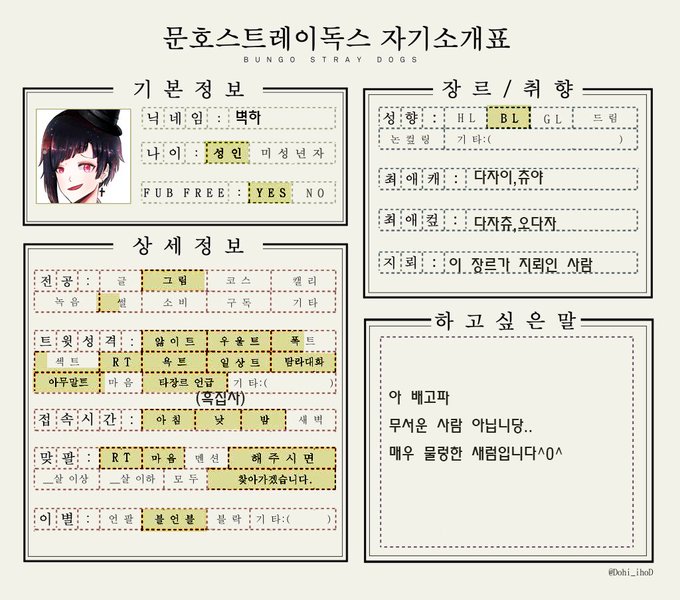 문호스트레이독스 자기소개표
BUNGO STRAY DOGS
기본정보
닉네임: 벽하
나이: 성인 미성년자
FUB FREE: YES NO
상세정보
전공: 글 그림 코스 캘리
녹음 썰 소비 구독 기타
트윗성격: 앓이트 우울트 폭트
섹트 RT 욕트 일상트 탐라대화
아무말트 마음 타장르 언급 기타:( )
(흑집사)
접속시간: 아침 낮 밤 새벽
맞팔: RT 마음 멘션 해주시면
__살 이상 __살 이하 모두 찾아가겠습니다.
이별: 언팔 블언블 블락 기타:( )
장르/취향
성향: HL BL GL 드림
논컾링 기타:( )
최애캐: 다자이,츄야
최애컾: 다자츄,오다자
지뢰: 이 장르가 지뢰인 사람
하고싶은말
아 배고파
무서운 사람 아닙니당..
매우 물렁한 새럼입니다^0^
@Dohi_ihoD